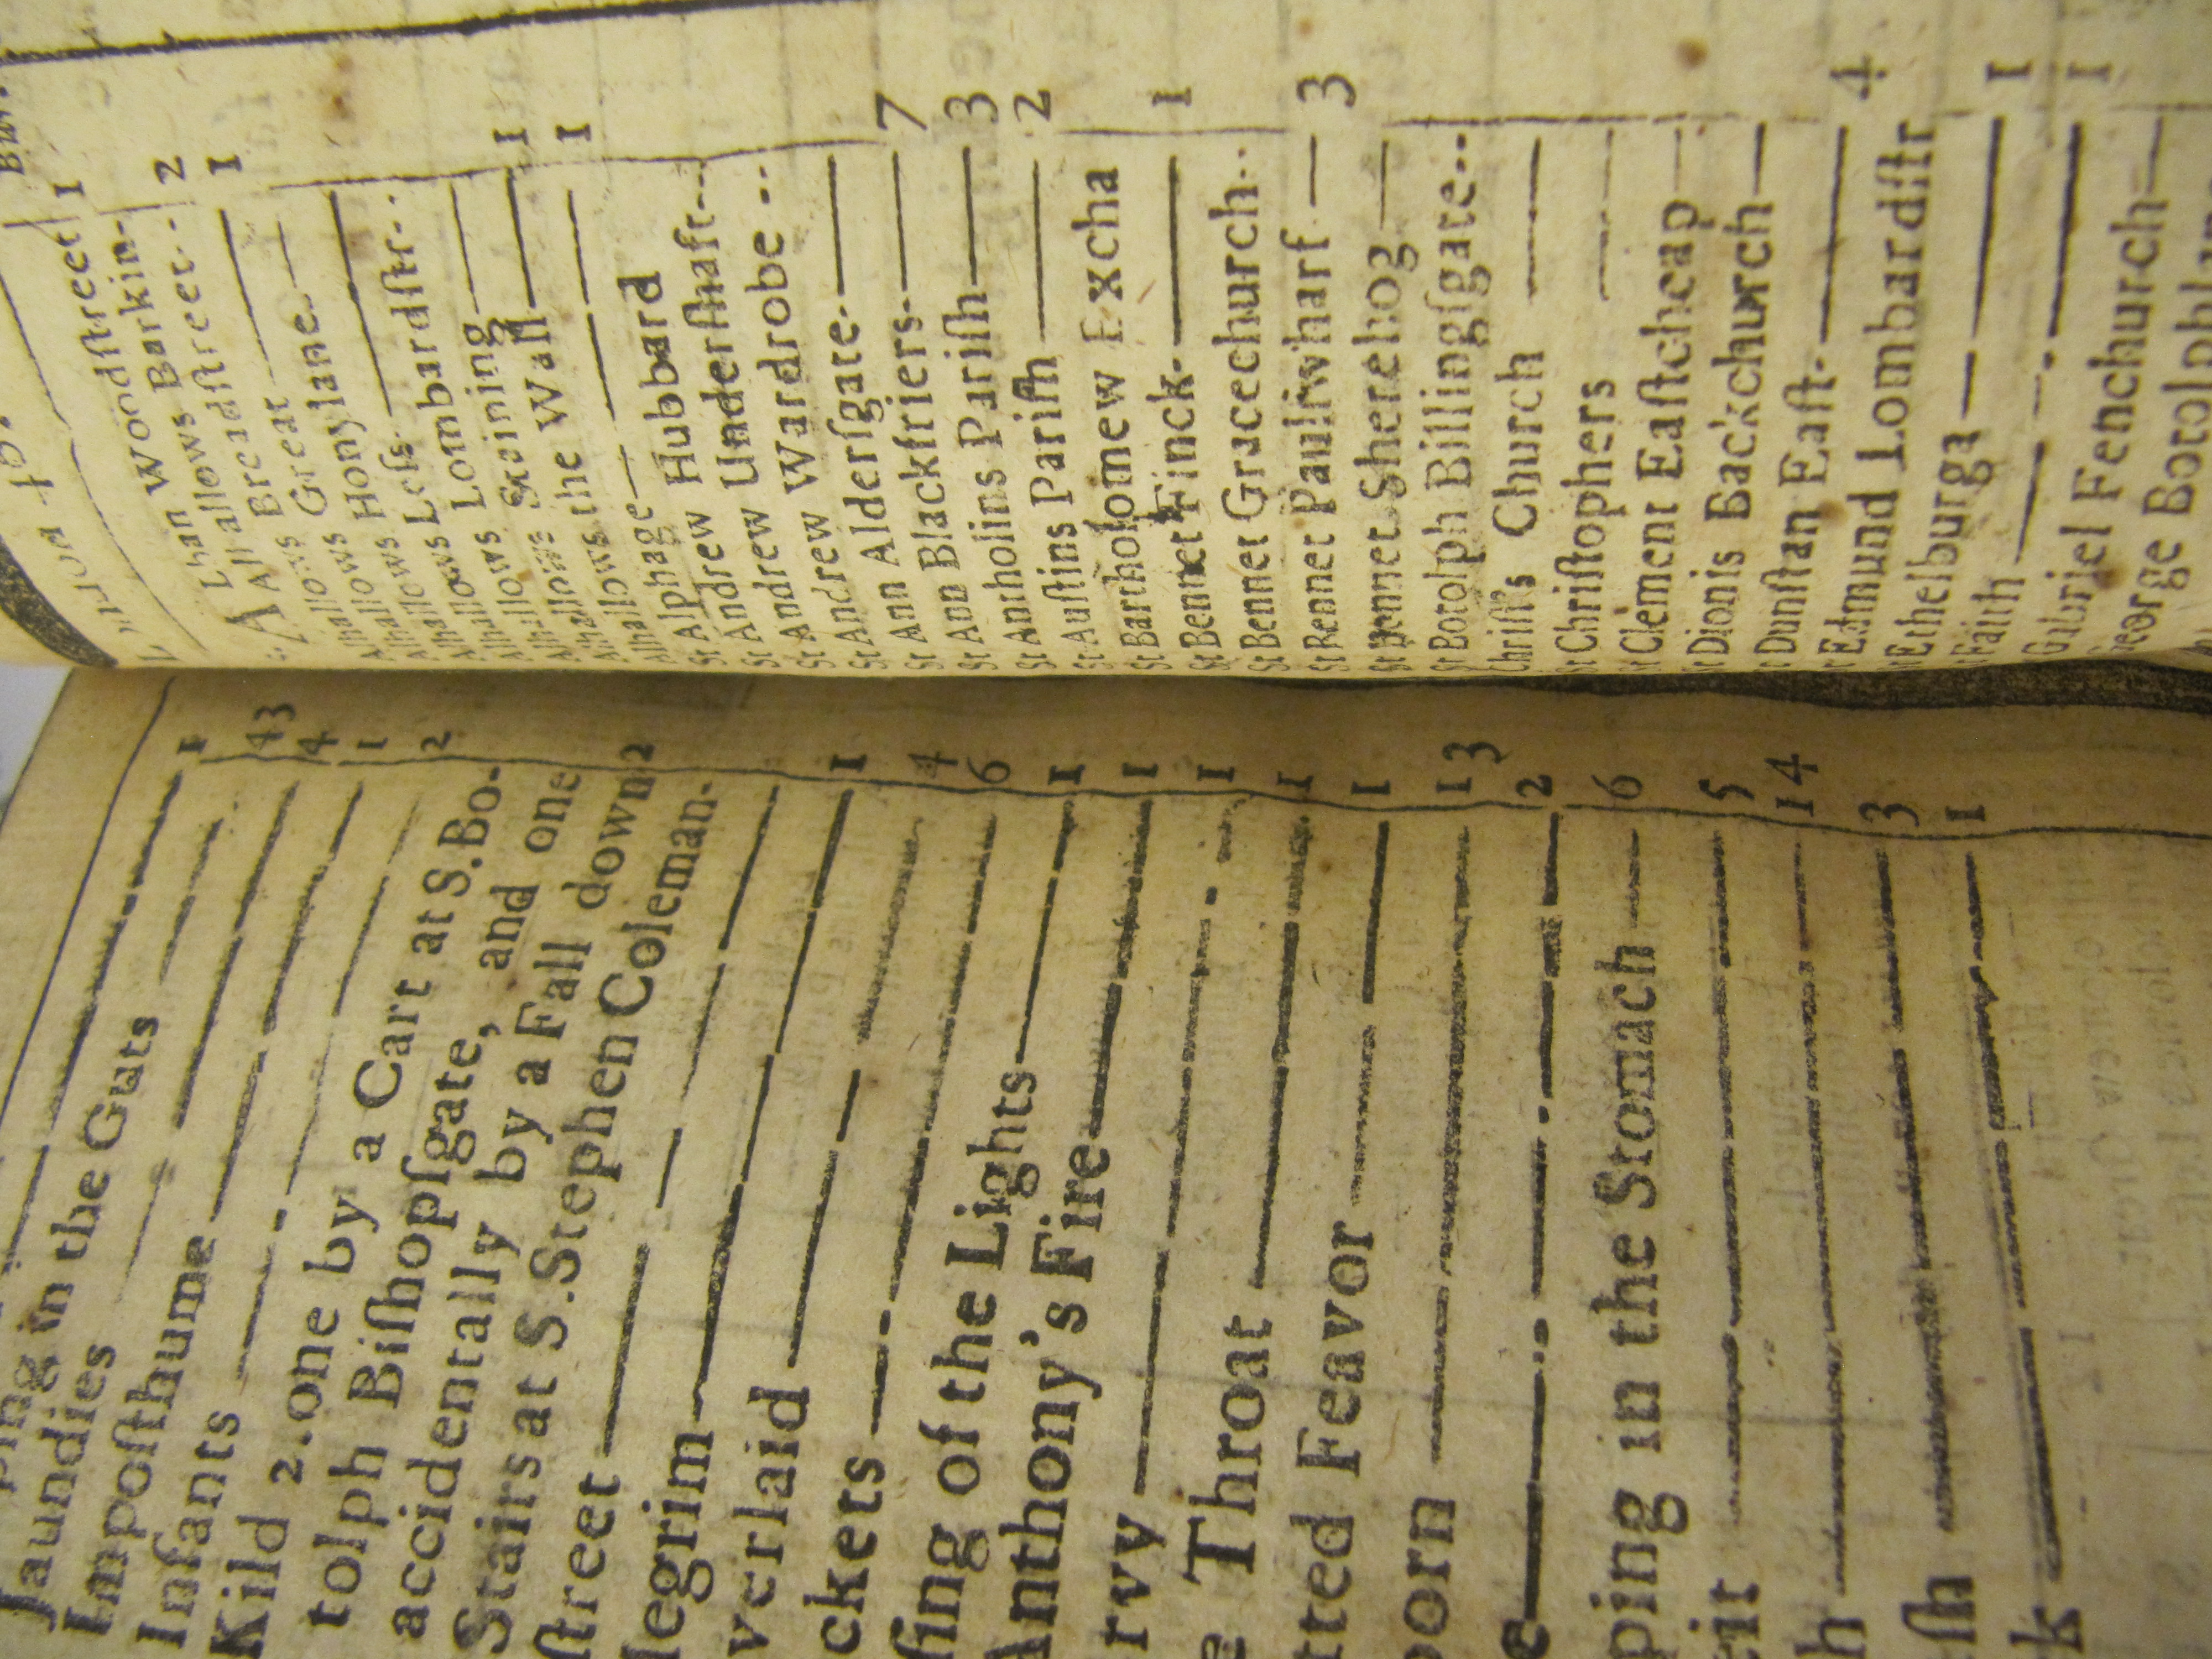 ping in the Guts — 43
Jaundies — 4
Imposthume — 1
Infants — 2
Kild 2. one by a Cart at S.Bo-
tolph Biſhopſgate, and one
accidentally by a Fall down 2
Stairs at S.Stephen Coleman-
ſtreet —
legrim — 1
verlaid — 4
ckets — 6
ſing of the Lights — 1
Anthony's Fire — 1
rvy — 1
e Throat — 1
tted Feavor — 1
born — 13
e — 2
ping in the Stomach — 6
eit — 5
h — 14
ſh — 3
k — 1
Woodſtreet 1
Alhallows Barkin- 2
Alhallows Breadſtreet-- 1
Alhallows Great
Alhallows Honylane
Alhallows Leſs
Alhallows Lombardſtr--
Alhallows Staining — 1
Alhallows the Wall — 1
Alphage —
St Andrew Hubbard
St Andrew Underſhaft --
St Andrew Wardrobe --
St Ann Alderſgate —
St Ann Blackfriers — 7
St Antholins Pariſh — 3
St Auſtins Pariſh — 2
St Bartholomew Excha
St Bennet Finck — 1
St Bennet Gracechurch--
St Bennet Paulſwharf — 3
St Bennet Sherehog —
St Botolph Billingſgate--
Chriſt's Church —
St Chriſtophers —
St Clement Eaſtcheap —
St Dionis Backchurch —
St Dunſtan Eaſt — 4
St Edmund Lombardſtr
St Ethelburga — 1
St Faith — 1
Gabriel Fenchurch —
George Botolph